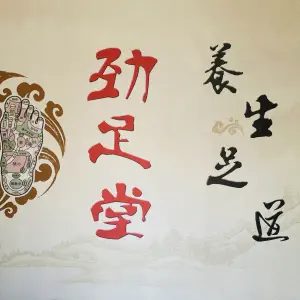 劲足堂
養生足道